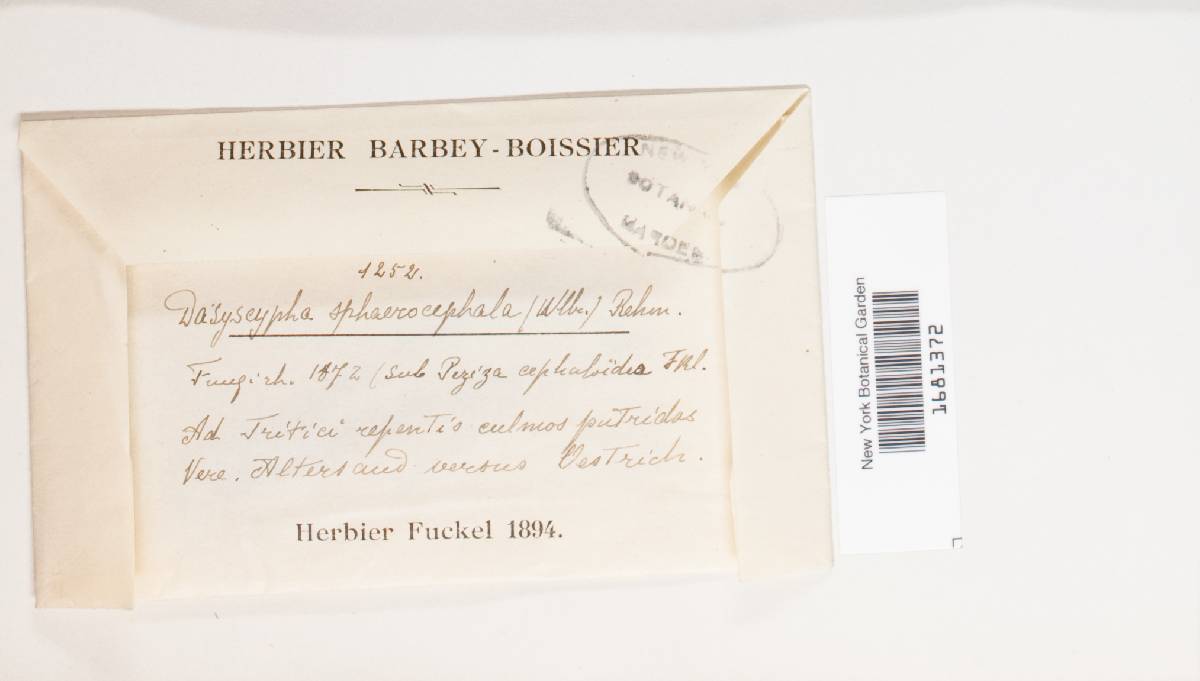 HERBIER BARBEY-BOISSIER
NEW
BOTAN
GARDEN
1252.
Dasyscypha sphaerocephala (Wllr.) Rehm.
Fungi rh. 1872 (sub Peziza cephaloidea Fkl.
Ad Tritici repentis culmos putridos
Vere. Altersaud versus Oestrich.
Herbier Fuckel 1894.
New York Botanical Garden
1681372